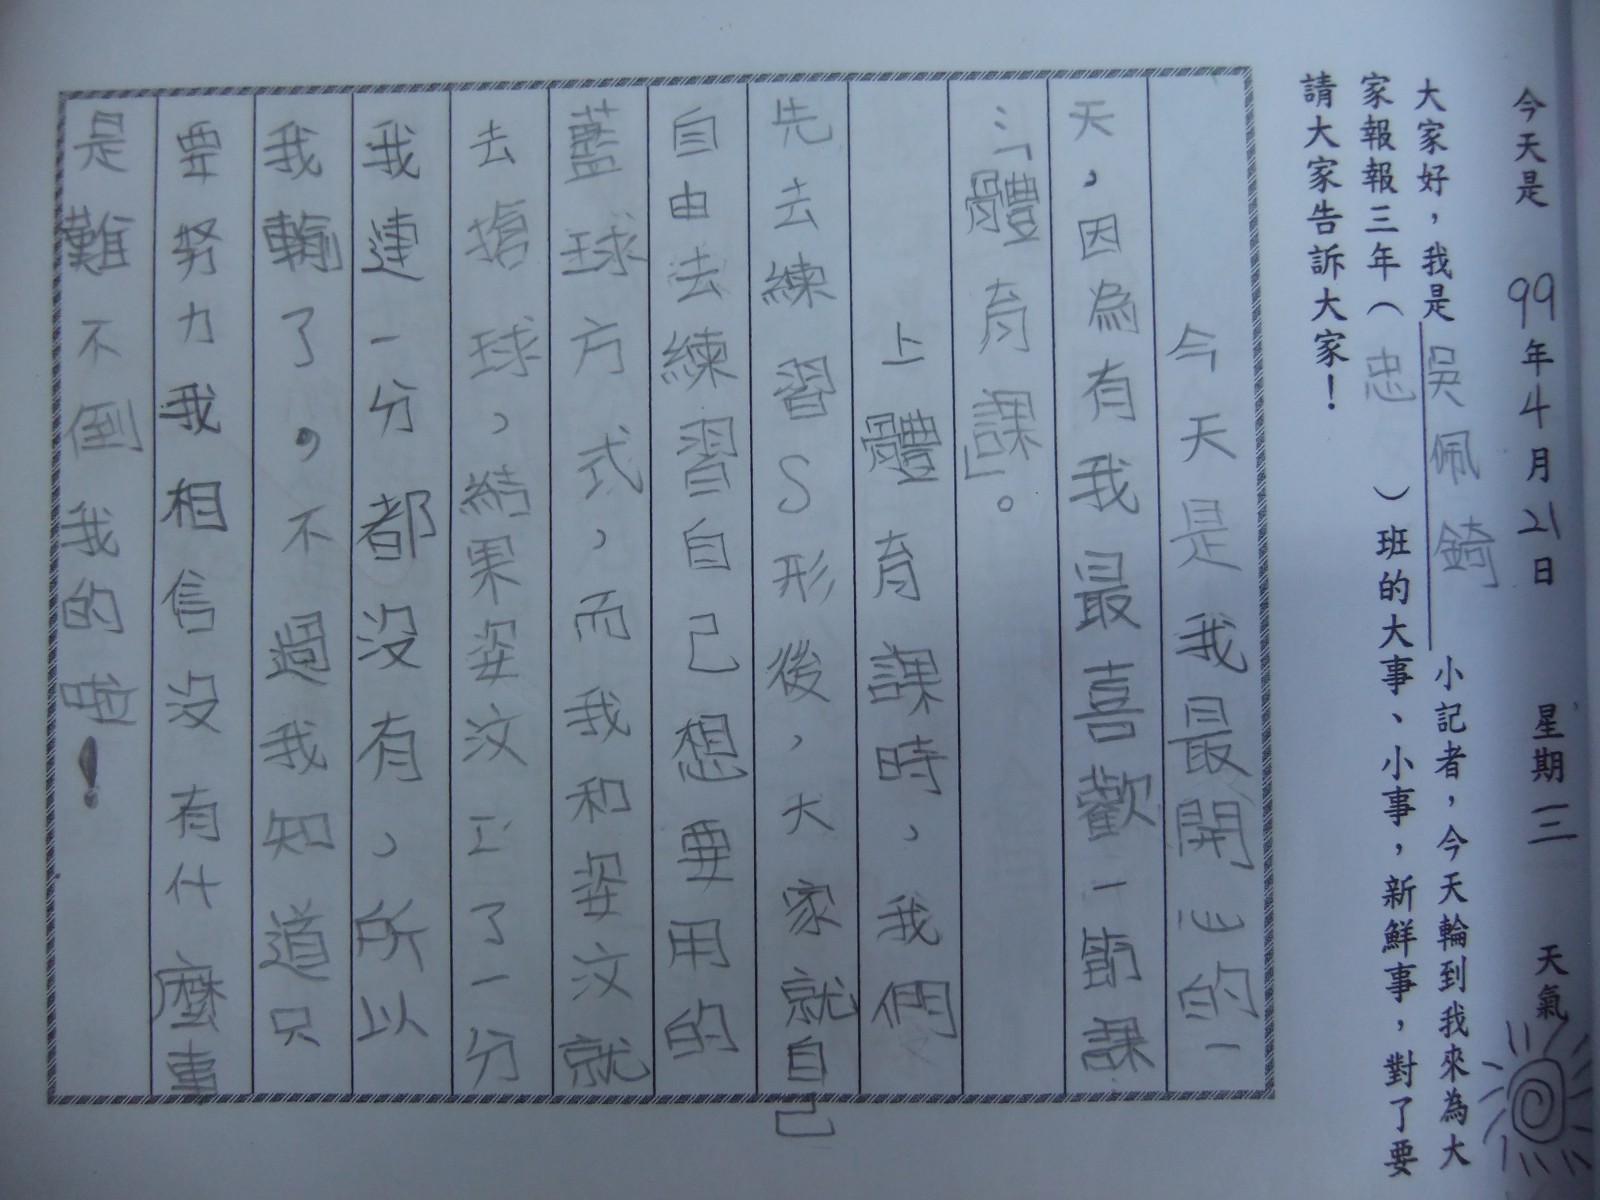 今天是 99年4月21日 星期三 天氣
大家好，我是吳佩錡小記者，今天輪到我來為大
家報報三年（忠）班的大事、小事，新鮮事，對了要
請大家告訴大家！
今天是我最開心的一
天，因為有我最喜歡一節課
：「體育課」。
上體育課時，我們
先去練習S形後，大家就自己
自由去練習自己想要用的
藍球方式，而我和姿汶就
去搶球，結果姿汶工了一分
我連一分都沒有，所以
我輸了，不過我知道只
要努力我相信沒有什麼事
是難不倒我的啦！